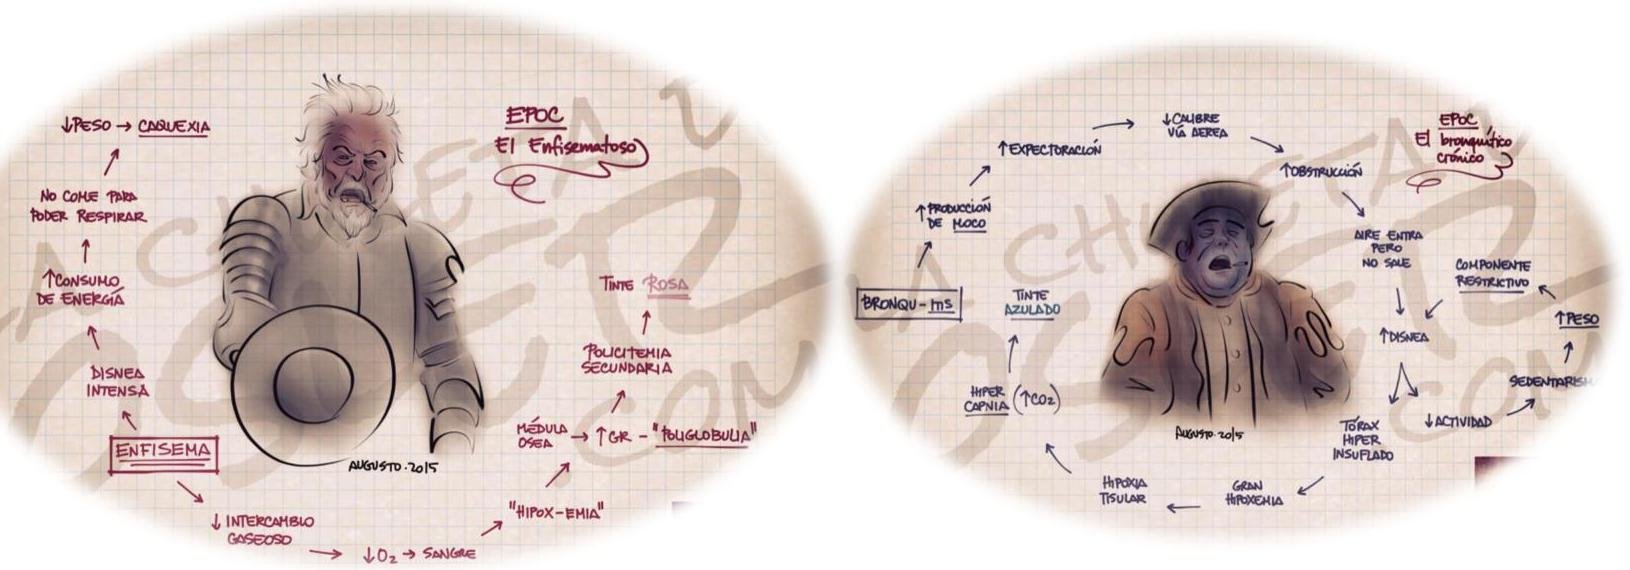 EPOC
El Enfisematoso
↓PESO → CAQUEXIA
NO COME PARA
PODER RESPIRAR
↑CONSUMO
DE ENERGÍA
DISNEA
INTENSA
ENFISEMA
↓ INTERCAMBIO
GASEOSO
↓O₂ → SANGRE
"HIPOX-EMIA"
MÉDULA
OSEA → ↑GR - "POLIGLOBULIA"
POLICITEMIA
SECUNDARIA
TINTE ROSA
AUGUSTO.2015
EPOC
El bronquítico
crónico
BRONQU-
↑PRODUCCIÓN
DE MOCO
↑EXPECTORACIÓN
↓CALIBRE
VÍA AEREA
↑OBSTRUCCIÓN
AIRE ENTRA
PERO
NO SALE
COMPONENTE
RESTRICTIVO
↑DISNEA
↑PESO
SEDENTARISM
↓ACTIVIDAD
TÓRAX
HIPER
INSUFLADO
GRAN
HIPOXEMIA
HIPOXIA
TISULAR
HIPER
CAPNIA (↑CO₂)
TINTE
AZULADO
AUGUSTO.2015
LA CHULETA